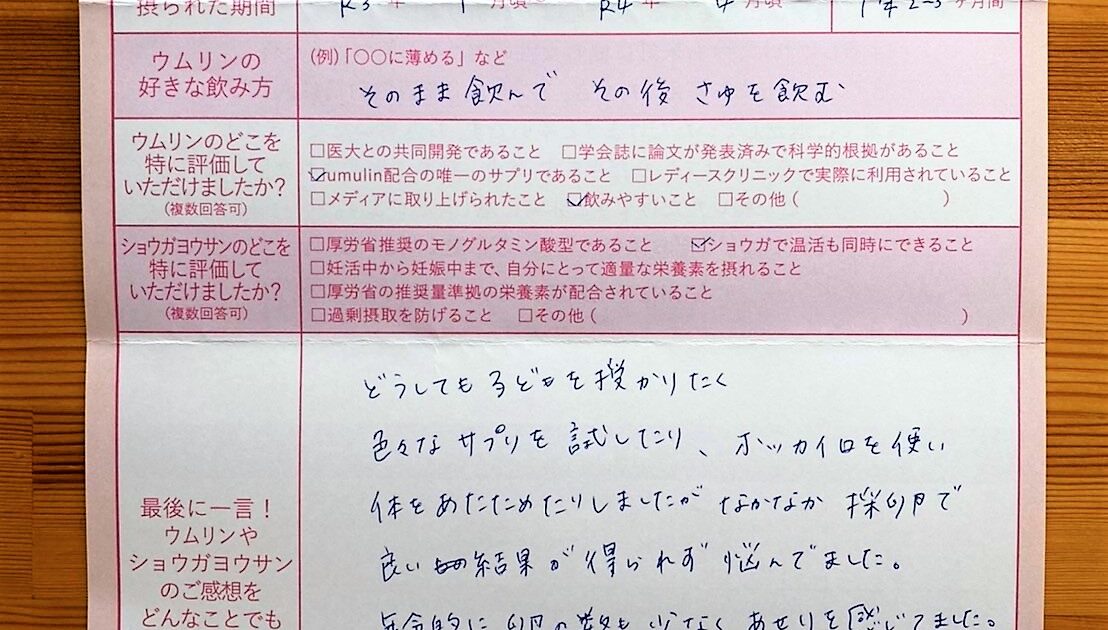 摂られた期間
R3年 1月頃 R4年 4月頃 1年2〜3ヶ月間
ウムリンの
好きな飲み方
(例)「〇〇に薄める」など
そのまま飲んで その後 さゆを飲む
ウムリンのどこを
特に評価して
いただけましたか?
(複数回答可)
□医大との共同開発であること □学会誌に論文が発表済みで科学的根拠があること
☑umulin配合の唯一のサプリであること □レディースクリニックで実際に利用されていること
□メディアに取り上げられたこと ☑飲みやすいこと □その他( )
ショウガヨウサンのどこを
特に評価して
いただけましたか?
(複数回答可)
□厚労省推奨のモノグルタミン酸型であること ☑ショウガで温活も同時にできること
□妊活中から妊娠中まで、自分にとって適量な栄養素を摂れること
□厚労省の推奨量準拠の栄養素が配合されていること
□過剰摂取を防げること □その他( )
最後に一言!
ウムリンや
ショウガヨウサン
のご感想を
どんなことでも
どうしても子どもを授かりたく
色々なサプリを試したり、ホッカイロを使い
体をあたためたりしましたがなかなか採卵で
良い結果が得られず悩んでました。
年令的に卵の数も少なくあせりを感じてました。